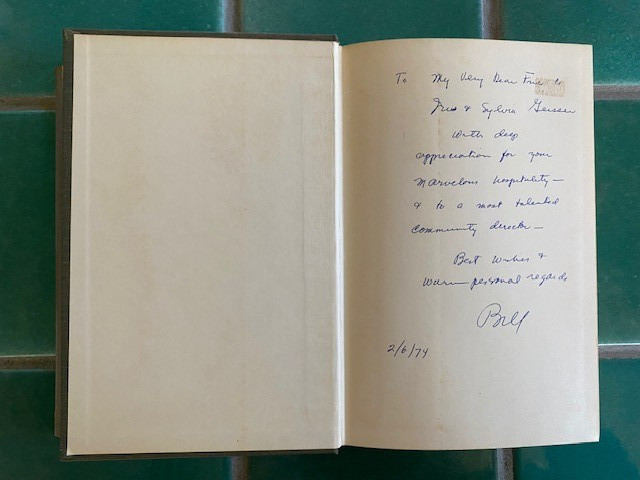 To My Very Dear Friends
& Sylvia
With deep
appreciation for your
marvelous hospitality—
& to a most talented
community director—
Best Wishes &
warm personal regards
Bill
2/6/74